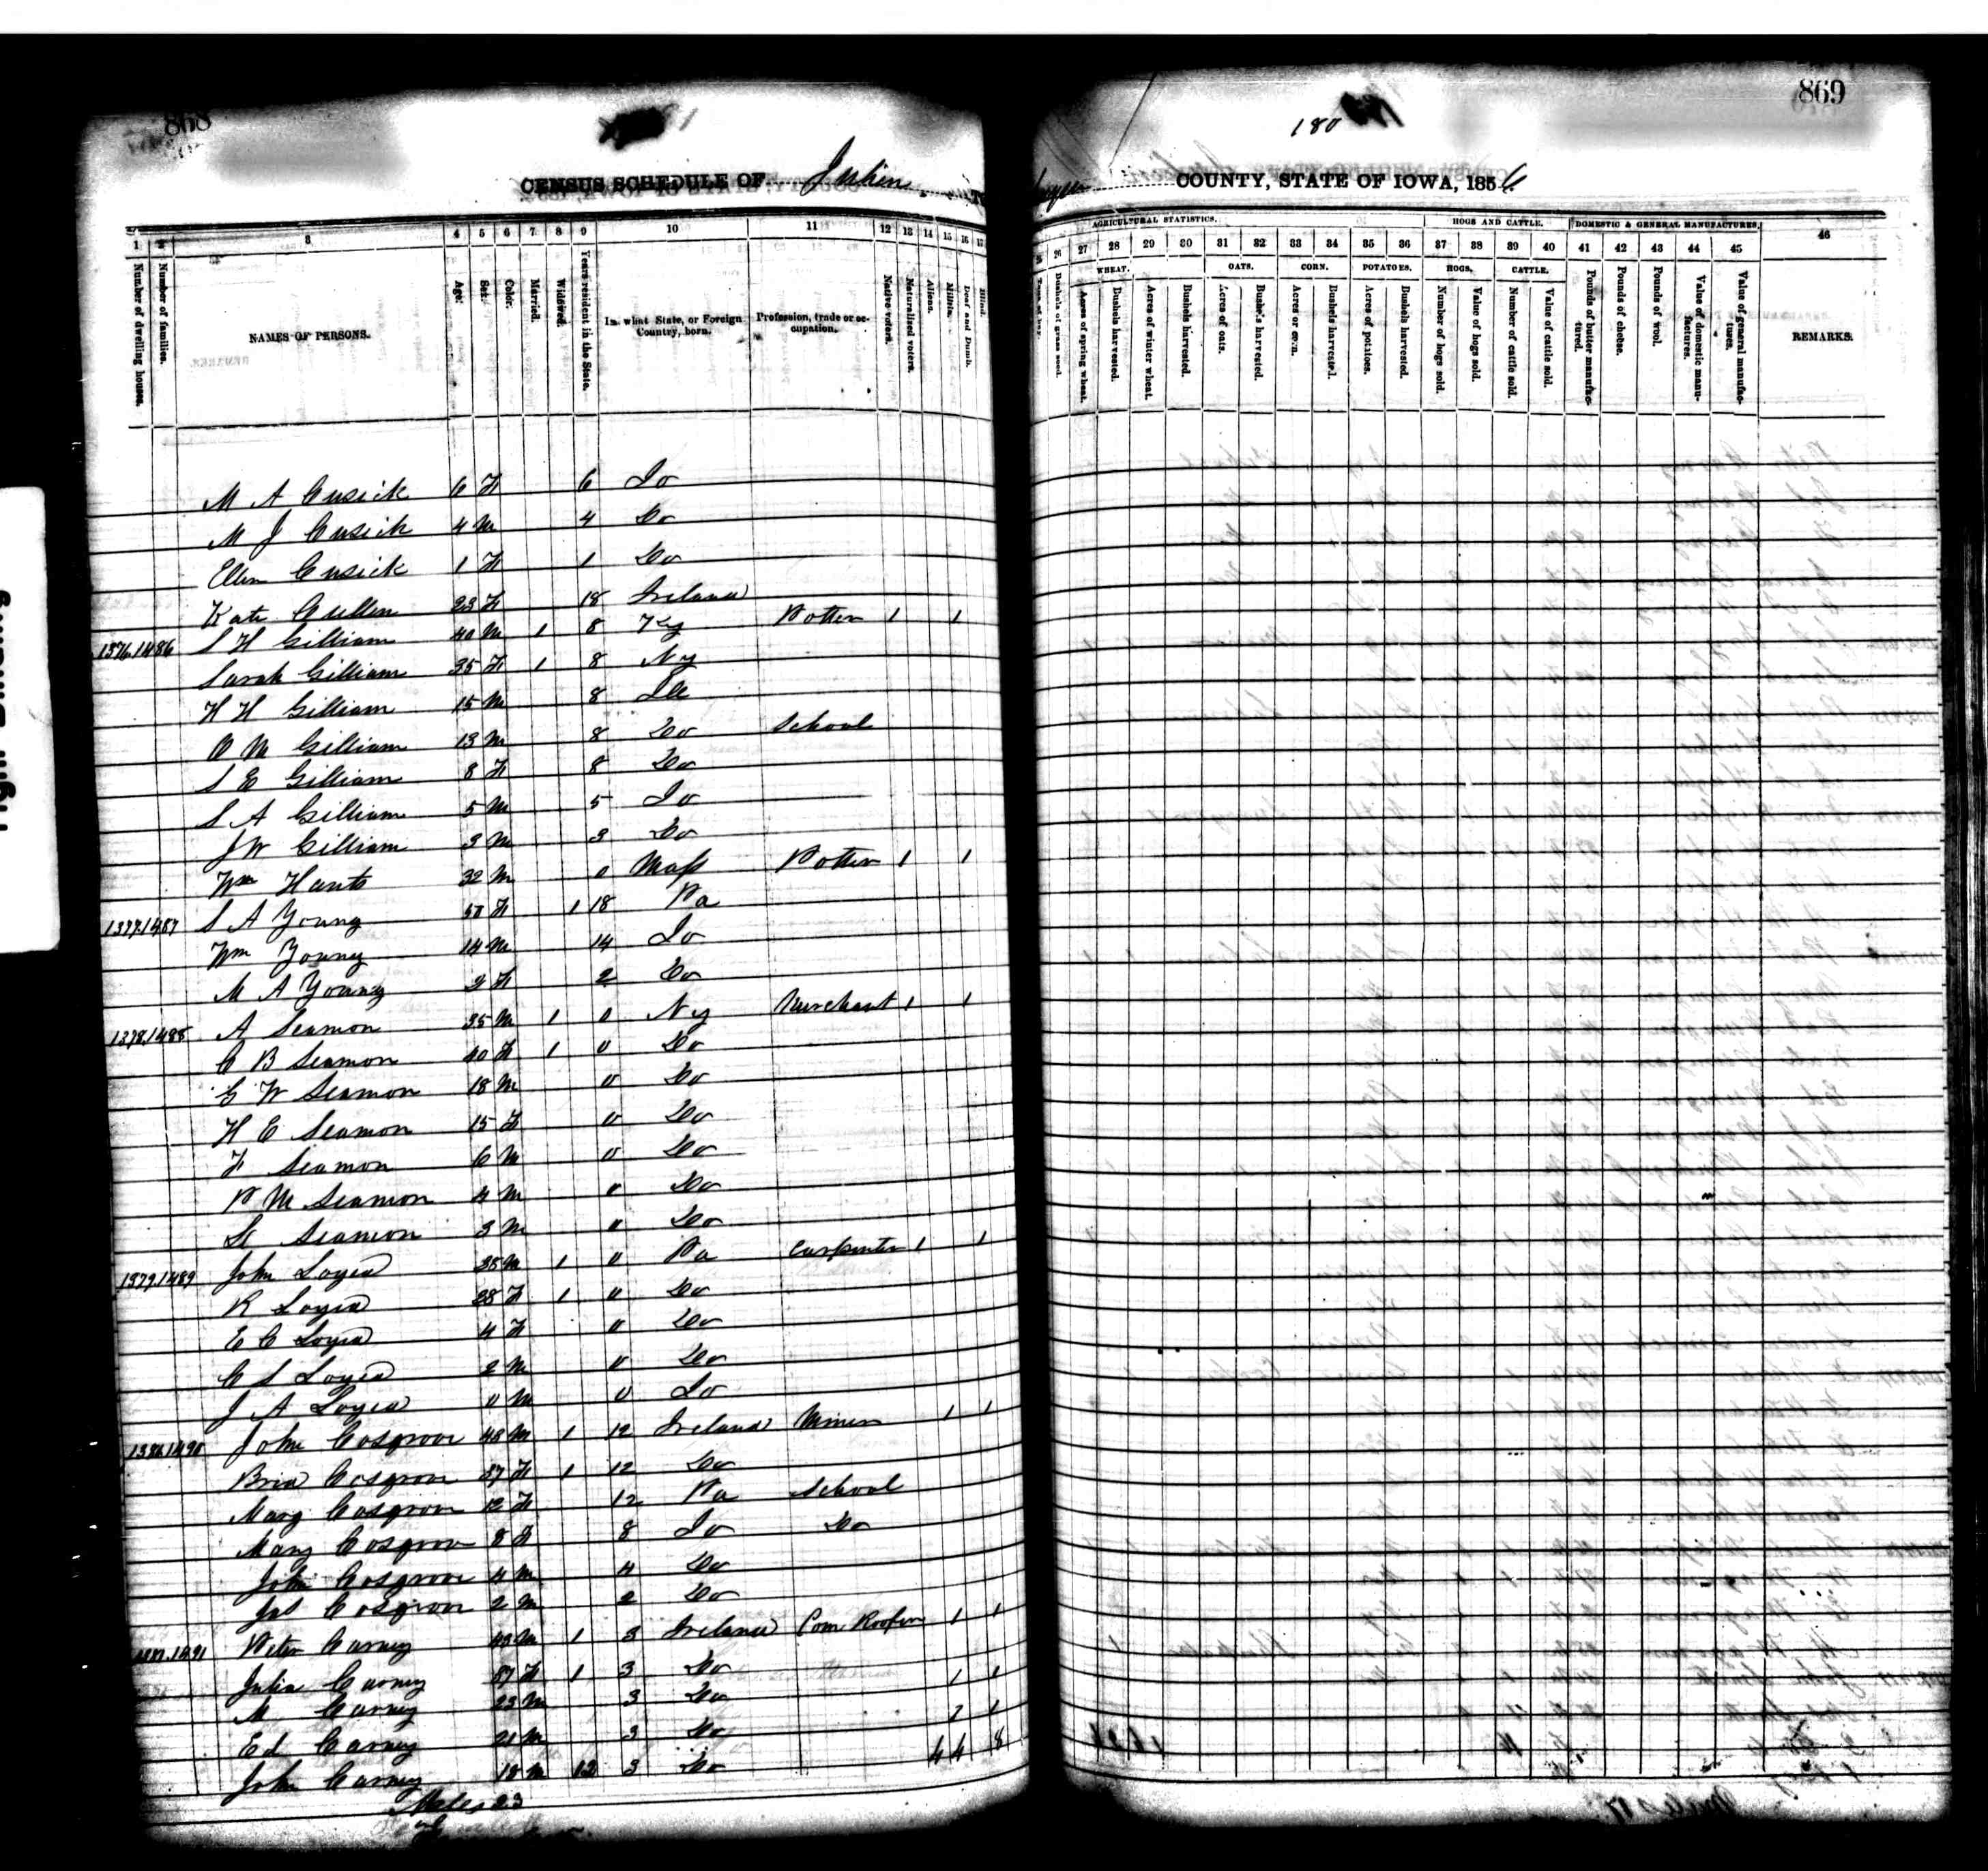 868
869
180
CENSUS SCHEDULE OF Julien
COUNTY, STATE OF IOWA, 1856
AGRICULTURAL STATISTICS. HOGS AND CATTLE. DOMESTIC & GENERAL MANUFACTURES.
1 2 3 4 5 6 7 8 9 10 11 12 13 14 15 16 17
26 27 28 29 30 31 32 33 34 35 36 37 38 39 40 41 42 43 44 45 46
WHEAT. OATS. CORN. POTATOES. HOGS. CATTLE.
Number of dwelling houses. Number of families. NAMES OF PERSONS. Age. Sex. Color. Married. Widowed. Years resident in the State. In what State, or Foreign Country, born. Profession, trade or occupation. Native voters. Naturalized voters. Aliens. Militia. Deaf and Dumb. Blind.
Bushels of grass seed. Acres of spring wheat. Bushels harvested. Acres of winter wheat. Bushels harvested. Acres of oats. Bushels harvested. Acres of corn. Bushels harvested. Acres of potatoes. Bushels harvested. Number of hogs sold. Value of hogs sold. Number of cattle sold. Value of cattle sold. Pounds of butter manufactured. Pounds of cheese. Pounds of wool. Value of domestic manufactures. Value of general manufactures. REMARKS.
M A Cusick 6 F 6 Io
M J Cusick 4 M 4 Do
Ellen Cusick 1 F 1 Do
Kate Cullen 23 F 18 Ireland
1376 1486 S H Gilliam 40 M 1 8 Ky Potter 1 1
Sarah Gilliam 35 F 1 8 Ny
H H Gilliam 15 M 8 Ill
O M Gilliam 13 M 8 Do School
S E Gilliam 8 F 8 Do
S A Gilliam 5 M 5 Io
J W Gilliam 3 M 3 Do
Wm Hants 32 M 0 Mass Potter 1 1
1377 1487 S A Young 50 F 1 18 Pa
Wm Young 14 M 14 Io
M A Young 2 F 2 Do
1378 1488 A Seamon 35 M 1 0 Ny Merchant 1 1
C B Seamon 40 F 1 0 Do
G W Seamon 18 M 0 Do
H E Seamon 15 F 0 Do
F Seamon 6 M 0 Do
P M Seamon 4 M 0 Do
Seamon 3 M 0 Do
1379 1489 John Loyed 35 M 1 0 Pa Carpenter 1 1
R Loyed 28 F 1 0 Do
E C Loyed 4 F 0 Do
C S Loyed 2 M 0 Do
J A Loyed 0 M 0 Io
1380 1490 John Cosgrove 48 M 1 12 Ireland Miner 1 1
Brid Cosgrove 37 F 1 12 Do
Marg Cosgrove 12 F 12 Pa School
Mary Cosgrove 8 F 8 Io Do
John Cosgrove 4 M 4 Do
Jas Cosgrove 2 M 2 Do
1491 Peter Carney 43 M 1 3 Ireland Com Roofer 1 1
Julia Carney 37 F 1 3 Do
M Carney 23 M 3 Do 1 1
Ed Carney 21 M 3 Do 1
John Carney 18 M 12 3 Do 4 4 8
Males 23